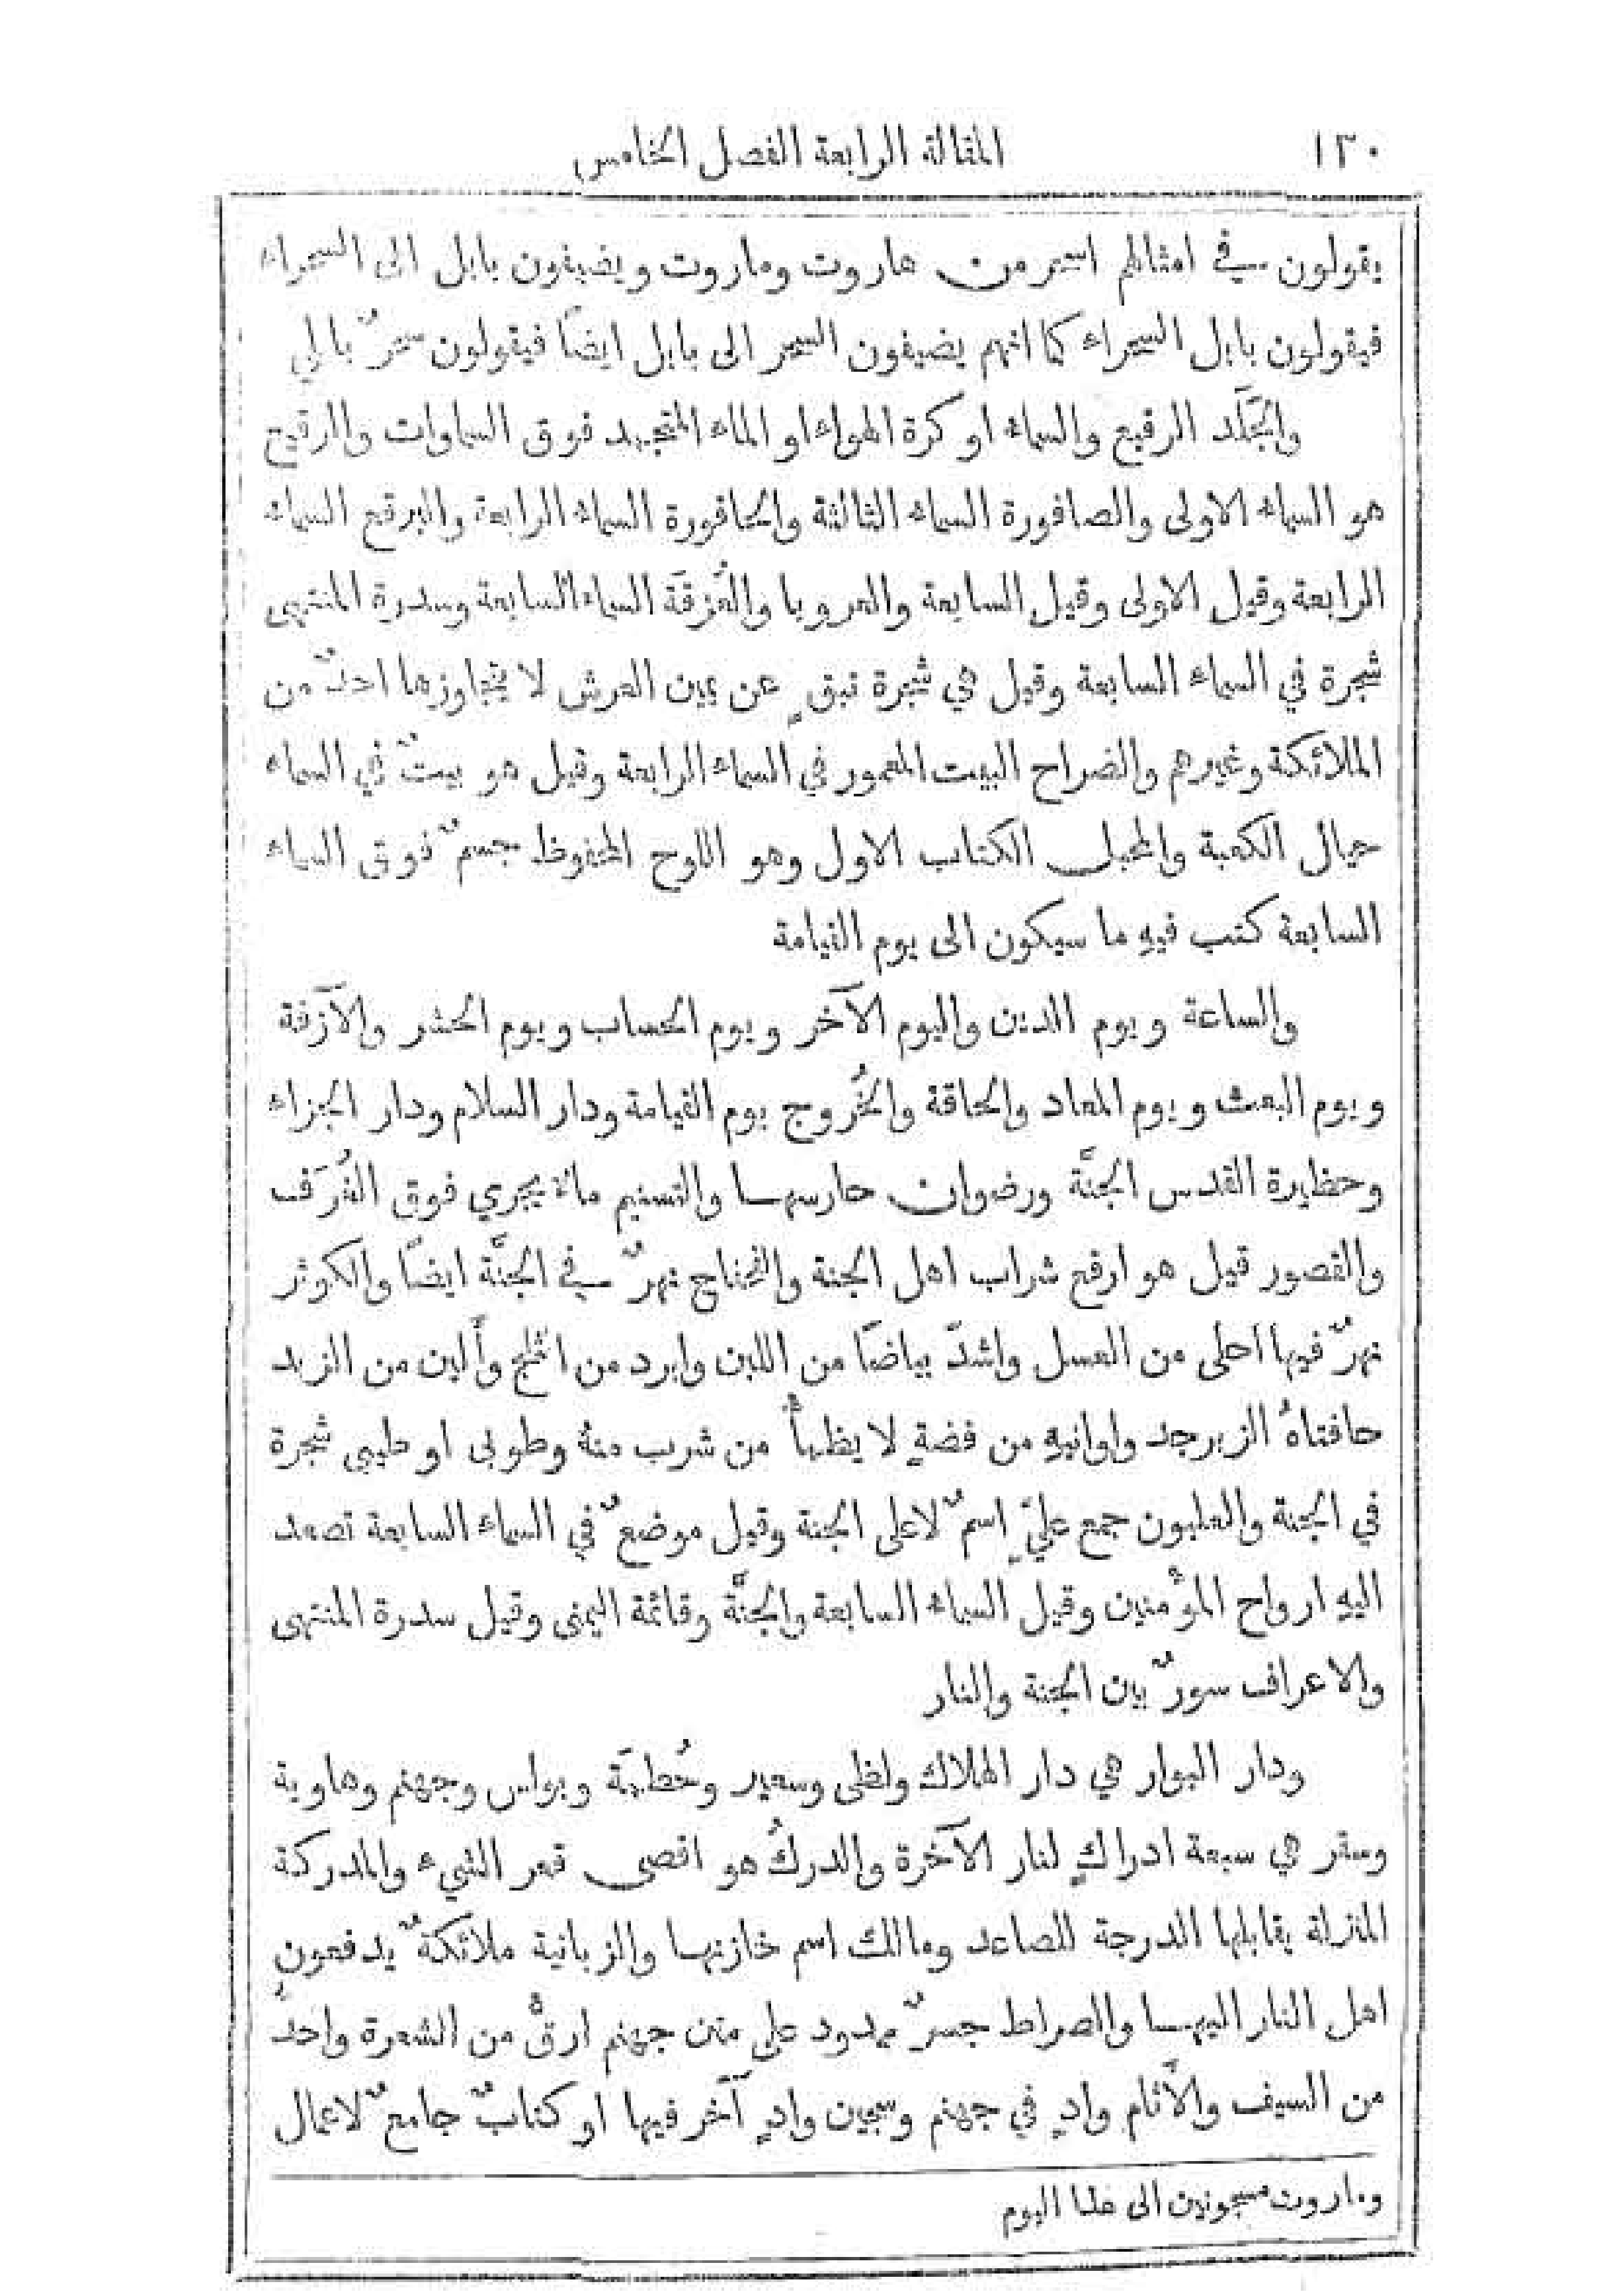 ١٣٠ المقالة الرابعة الفصل الخامس
يقولون في امثالهم اسحر من هاروت وماروت ويضيفون بابل الى السحراء
فيقولون بابل السحراء كما انهم يضيفون السحر الى بابل ايضًا فيقولون سحرٌ بابلي
والجَلَد الرقيع والسماء او كرة الهواء او الماء المتجمد فوق السماوات والرقيع
هو السماء الاولى والصاقورة السماء الثالثة والحاقورة السماء الرابعة والبرقع السماء
الرابعة وقيل الاولى وقيل السابعة والعروبا والغُرفَة السماء السابعة وسدرة المنتهى
شجرة في السماء السابعة وقيل هي شجرة نبقٍ عن يمين العرش لا يتجاوزها احدٌ من
الملائكة وغيرهم والضراح البيت المعمور في السماء الرابعة وقيل هو بيتٌ في السماء
حيال الكعبة والمجبل الكتاب الاول وهو اللوح المحفوظ جسمٌ فوق السماء
السابعة كتب فيهِ ما سيكون الى يوم القيامة
والساعة ويوم الدين واليوم الآخر ويوم الحساب ويوم الحشر والآزفة
ويوم البعث ويوم المعاد والحاقة والخُروج يوم القيامة ودار السلام ودار الجزاء
وحظيرة القدس الجنَّة ورضوان حارسها والتسنيم ماءٌ يجري فوق الغُرَف
والقصور قيل هو ارفع شراب اهل الجنة والخناج نهرٌ في الجنَّة ايضًا والكوثر
نهرٌ فيها احلى من العسل واشدّ بياضًا من اللبن وابرد من الثلج وأَلين من الزبد
حافتاهُ الزبرجد واوانيهِ من فضةٍ لا يظمأُ من شرب منهُ وطوبى او طيبى شجرة
في الجنة والعليون جمع عليّ اسمٌ لاعلى الجنة وقيل موضعٌ في السماء السابعة تصعد
اليهِ ارواح المؤْمنين وقيل السماء السابعة والجنَّة وقائمة اليمنى وقيل سدرة المنتهى
والاعراف سورٌ بين الجنة والنار
ودار البوار هي دار الهلاك ولظى وسعير وحُطَمَة وبولس وجهنم وهاوية
وسقر هي سبعة ادراكٍ لنار الآخرة والدركُ هو اقصى قعر الشيء والمدركة
المنزلة يقابلها الدرجة للصاعد ومالك اسم خازنها والزبانية ملائكةٌ يدفعون
اهل النار اليها والصراط جسرٌ ممدود على متن جهنم ارقُّ من الشعرة واحدُّ
من السيف والأَثام وادٍ في جهنم وسجين وادٍ آخر فيها او كتابٌ جامعٌ لاعمال
وماروت مسجونين الى هذا اليوم